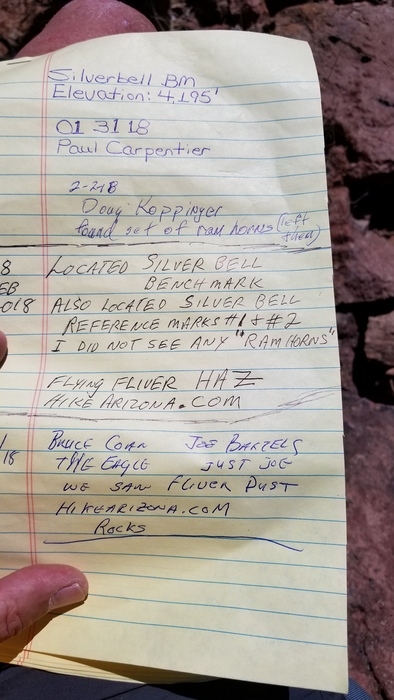 Silverbell Bm
Elevation: 4,195'
01 31 18
Paul Carpentier
2-2-18
Doug Koppinger
found set of ram horns (left them)
8 LOCATED SILVER BELL
EB BENCHMARK
018 ALSO LOCATED SILVER BELL
REFERENCE MARKS #1 & #2
I DID NOT SEE ANY "RAM HORNS"
FLYING FLIVER HAZ
HIKE ARIZONA.COM
BRUCE JOE BARTELS
18 THE EAGLE JUST JOE
WE SAW FLIVER DUST
HIKEARIZONA.COM
Rocks